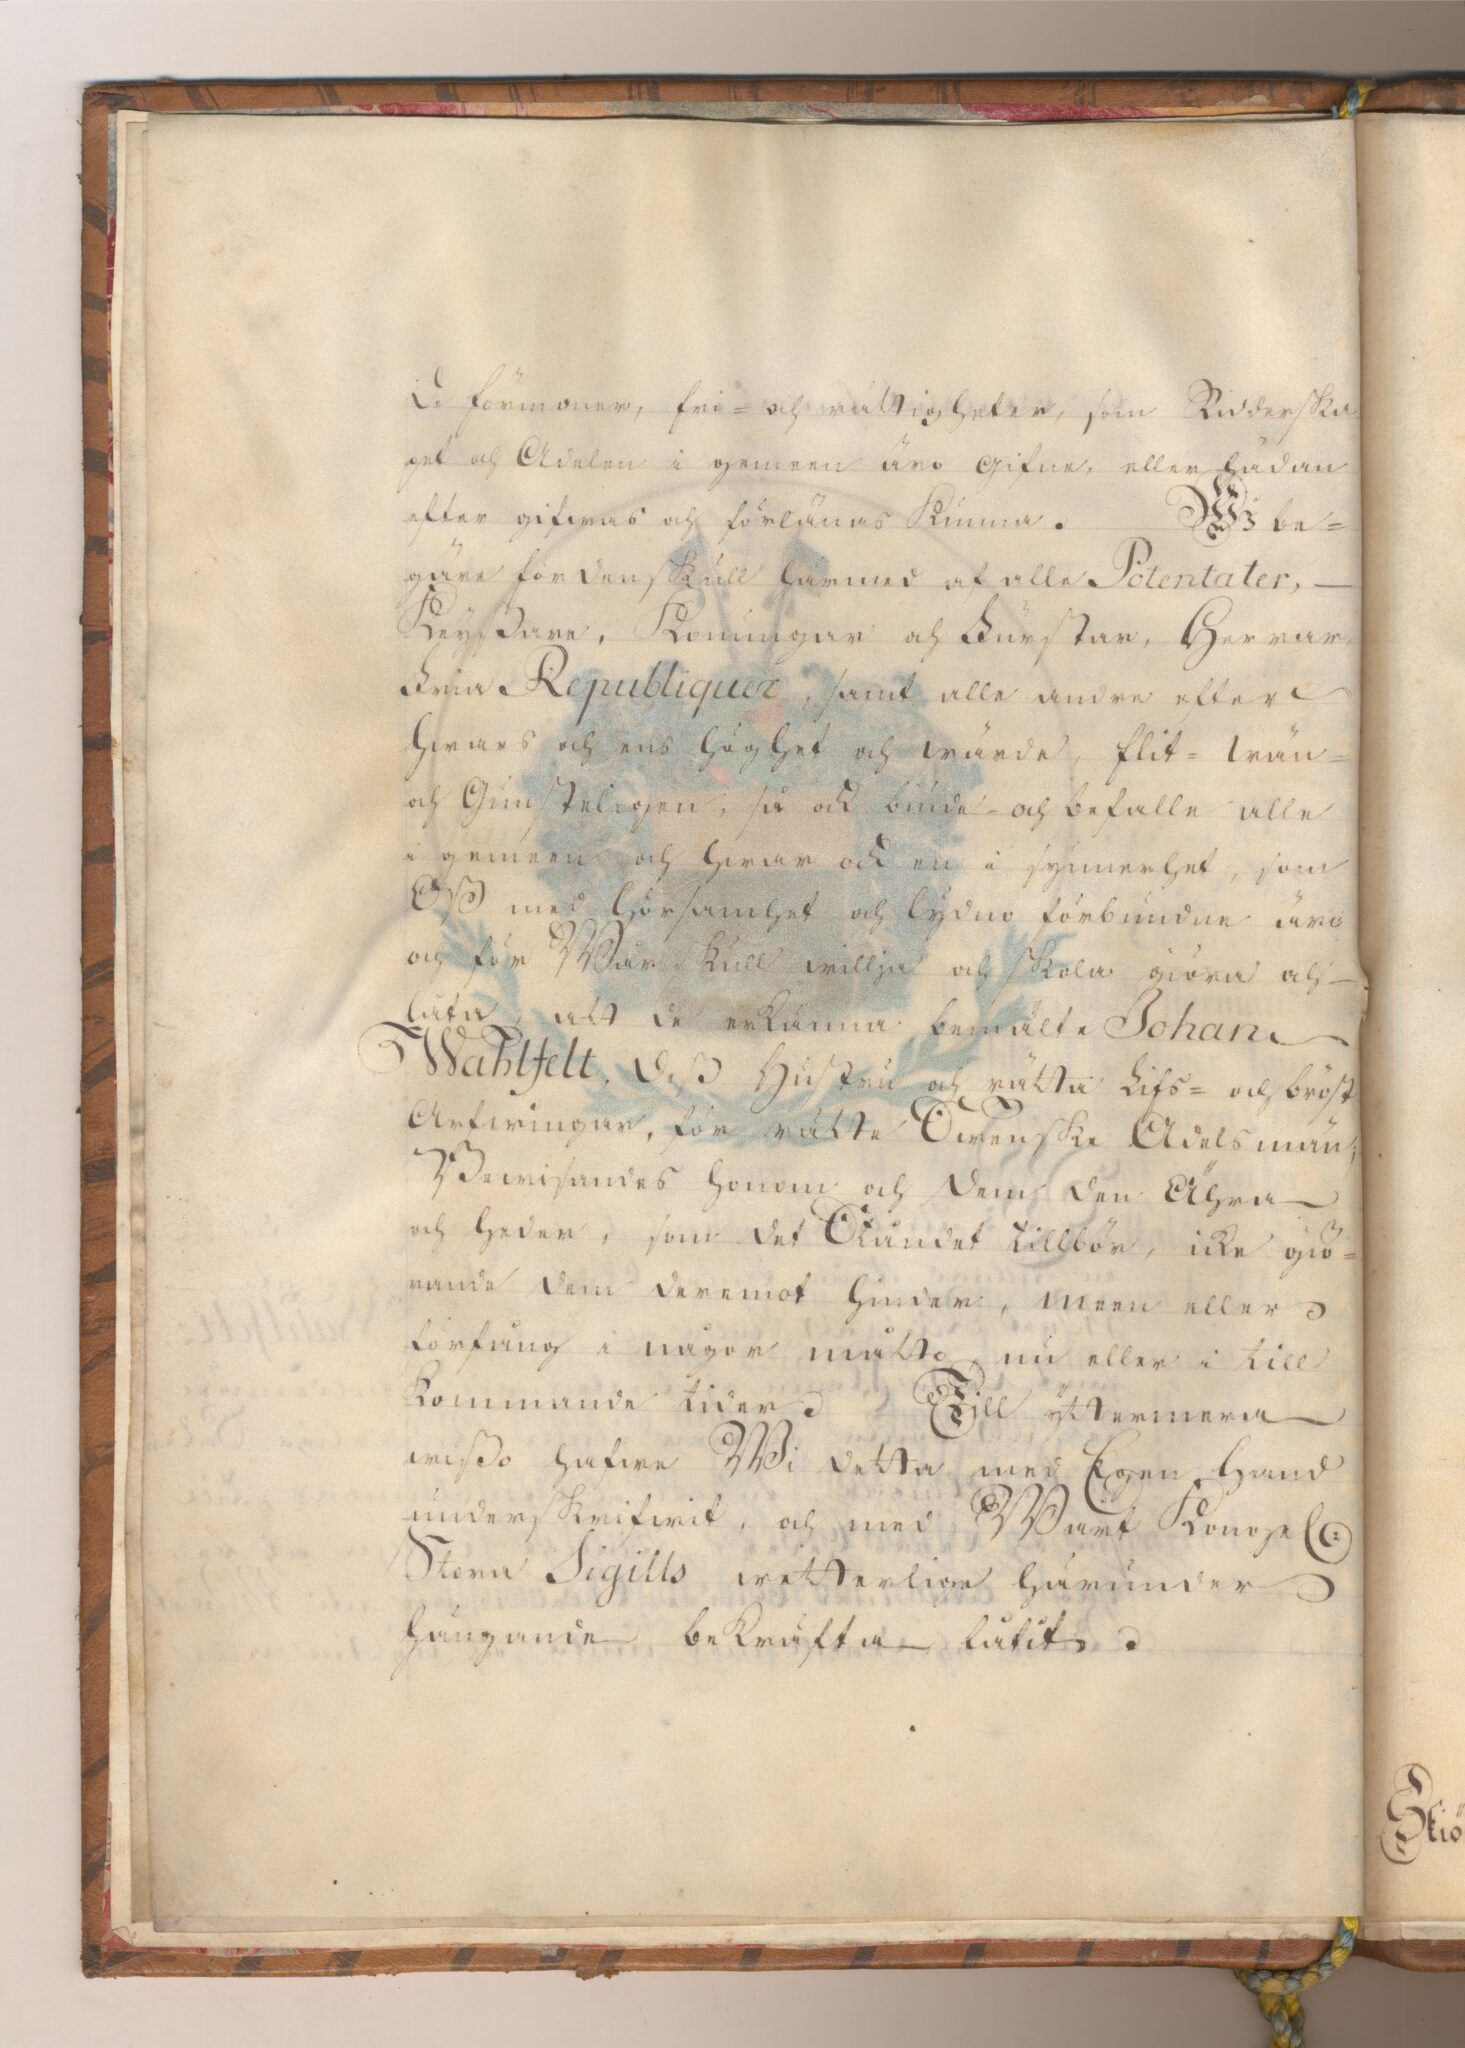 De förmoner, fri- och rättigheter, som Ridderska
pet och Adelen i gemeen äro gifne, eller hädan
efter gifwas och förlänas kunna. Wi be=
gäre fördenskull härmed af alle Potentater,
Keyßare, Konungar och Furstar, Herrar,
Fria Republiquer, samt alle andre efter
hwars och ens höghet och wärde, flit= wän=
och Gunsteligen, så ock biude och befalle alle
i gemeen och hwar ock en i synnerhet, som
Oß med hörsamhet och lydno förbundne äro
och för Wår skull willja och skola giöra och
låta, att de erkänna bemälte Johan
Wahlfelt, deß Hustru och rätta Lifs= och bröst
Arfwingar, för rätte Swenske Adelsmän,
Bewisandes honom och dem den Ähra
och heder, som det Ståndet tillbör, icke giö=
rande dem deremot hinder, meen eller
förfång i någor måtto, nu eller i till
kommande tider. Till yttermera
wißo hafwe Wi detta med Egen Hand
underskrifwit, och med Wårt Konge(:
Stora Sigills wetterlige härunder
hängande bekräfta låtit.
Skiö